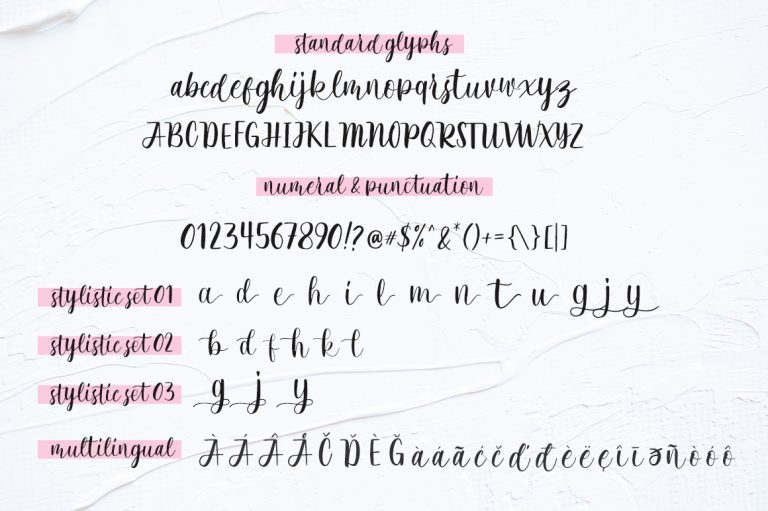 standard glyphs
abcdefghijklmnopqrstuvwxyz
ABCDEFGHIJKLMNOPQRSTUVWXYZ
numeral & punctuation
01234567890!?@#$%^&*()+={\}[|]
stylistic set 01 a d e h i l m n t u g j y
stylistic set 02 b d f h k l
stylistic set 03 g j y
multilingual À Á Â Å Č Ď È Ğ à á ã ć č ď đ è ë ę î ī ə ñ ò ó ô